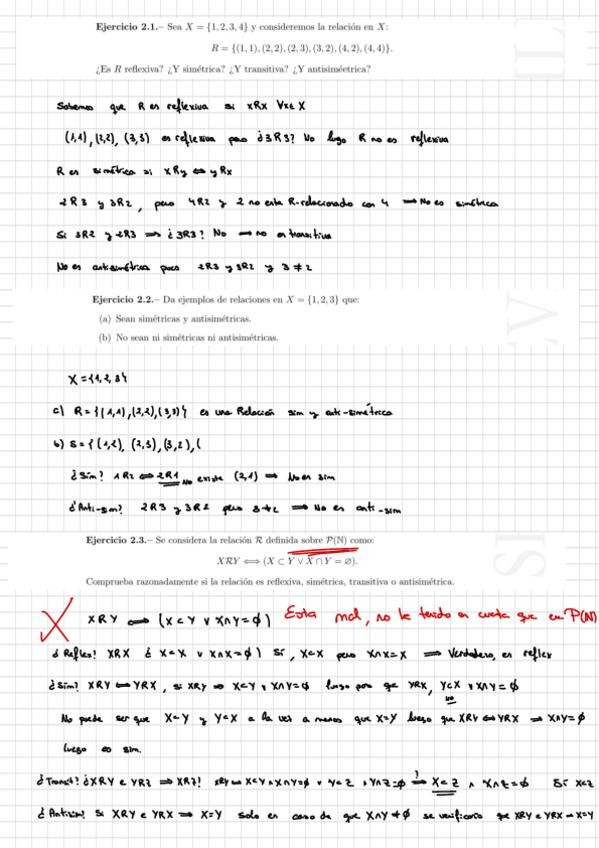 Ejercicio 2.1.– Sea X = {1, 2, 3, 4} y consideremos la relación en X:
R = {(1, 1), (2, 2), (2, 3), (3, 2), (4, 2), (4, 4)}.
¿Es R reflexiva? ¿Y simétrica? ¿Y transitiva? ¿Y antisiméetrica?
Sabemos que R es reflexiva si xRx ∀x∈X
(1,1), (2,2), (3,3) es reflexiva pero ¿3R3? No luego R no es reflexiva
R es simétrica si xRy ⟺ yRx
2R3 y 3R2, pero 4R2 y 2 no esta R-relacionado con 4 ⟹ No es simétrica
Si 3R2 y 2R3 ⟹ ¿3R3? No ⟹ no es transitiva
No es antisimétrica pues 2R3 y 3R2 y 3 ≠ 2
Ejercicio 2.2.– Da ejemplos de relaciones en X = {1, 2, 3} que:
(a) Sean simétricas y antisimétricas.
(b) No sean ni simétricas ni antisimétricas.
X = {1, 2, 3}
a) R = {(1,1), (2,2), (3,3)} es una Relación sim y anti-simétrica
b) S = {(1,2), (2,3), (3,2), (
¿Sim? 1R2 ⟺ 2R1 No existe (2,1) ⟹ No es sim
¿Anti-sim? 2R3 y 3R2 pero 3≠2 ⟹ No es anti-sim
Ejercicio 2.3.– Se considera la relación R definida sobre P(N) como:
XRY ⟺ (X ⊂ Y ∨ X ∩ Y = ∅).
Comprueba razonadamente si la relación es reflexiva, simétrica, transitiva o antisimétrica.
XRY ⟺ (X⊂Y ∨ X∩Y=∅) Esta mal, no he tenido en cuenta que en P(N)
¿Reflex? XRX ¿ X⊂X ∨ X∩X=∅) Sí, X⊂X pero X∩X=X ⟹ Verdadero, es reflex
¿Sim? XRY ⟺ YRX, si XRY ⟹ X⊂Y ∨ X∩Y=∅ luego para que YRX, Y⊂X ∨ X∩Y=∅
No
No puede ser que X⊂Y y Y⊂X a la vez a menos que X=Y luego que XRY ⟺ YRX ⟹ X∩Y=∅
luego es sim.
¿Transit? ¿XRY e YRZ ⟹ XRZ? XRY ⟹ X⊂Y ∧ X∩Y=∅ ∨ Y⊂Z ∧ Y∩Z=∅ ⟹? X⊂Z ∧ X∩Z=∅ Sí X⊂Z
¿Antisim? Si XRY e YRX ⟹ X=Y solo en caso de que X∩Y≠∅ se verificaría que XRY e YRX ⟹ X=Y